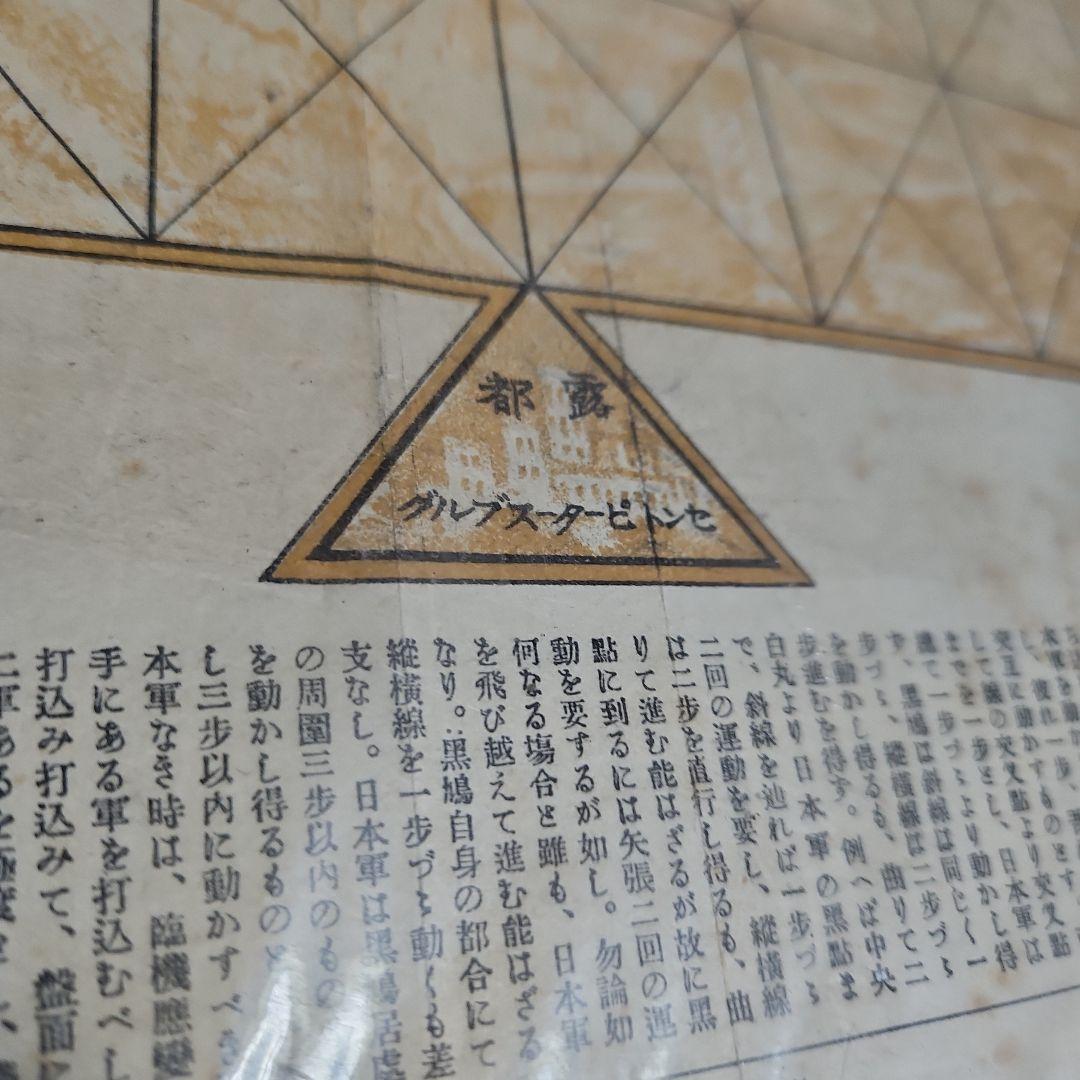 露都
セントピータースブルグ
して線の交叉點より交叉點
までを一步とし、日本軍は
總て一步づゝより動かし得
ず、黑鳩は斜線は同じく一
步づゝ、縱橫線は二步づゝ
を動かし得るも、曲りて二
步進むを得ず。例へば中央
白丸より日本軍の黑點ま
で、斜線を辿れば一步づゝ
二回の運動を要し、縱橫線
は二步を直行し得るも、曲
りて進む能はざるが故に黑
點に到るには矢張二回の運
動を要するが如し。勿論如
何なる塲合と雖も、日本軍
を飛び越えて進む能はざる
なり。黑鳩自身の都合にて
縱橫線を一步づゝ動くも差
支なし。日本軍は黑鳩居處
の周圍三步以内のもの
を動かし得るものと
し三步以内に動かすべき
本軍なき時は、臨機應變
手にある軍を打込むべし
打込み打込みて、盤面に
二軍あるを極度と